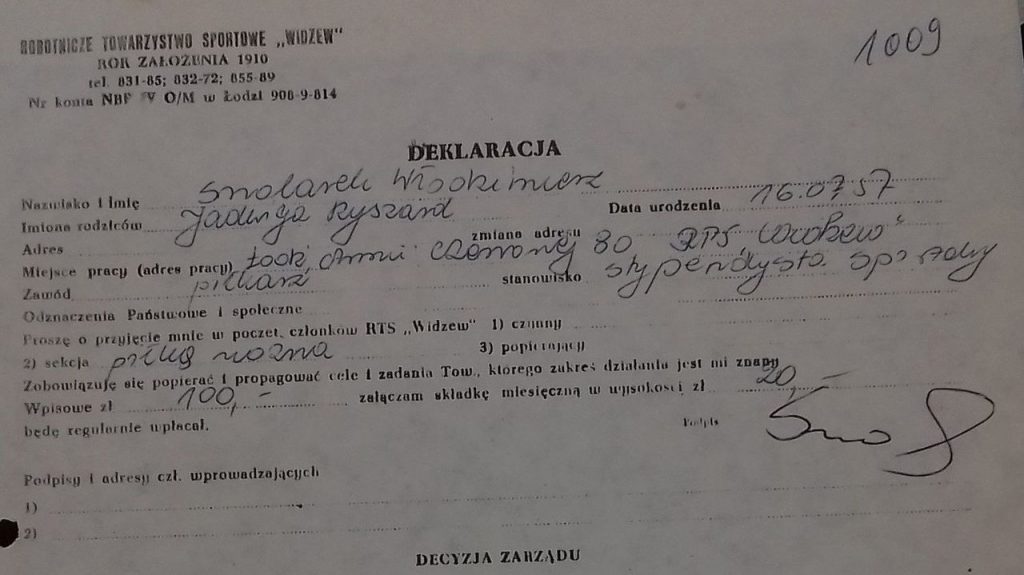 ROBOTNICZE TOWARZYSTWO SPORTOWE „WIDZEW"
ROK ZAŁOŻENIA 1910
tel. 831-85; 832-72; 855-89
Nr konta NBP IV O/M w Łodzi 908-9-814
1009
DEKLARACJA
Nazwisko i imię Smolarek Włodzimierz
Data urodzenia 16.07 57
Imiona rodziców Jadwiga Ryszard
Adres zmiana adresu
Miejsce pracy (adres pracy) Łódź, Armii Czerwonej 80 RTS „Widzew"
Zawód piłkarz stanowisko stypendysta sportowy
Odznaczenia Państwowe i społeczne
Proszę o przyjęcie mnie w poczet, członków RTS „Widzew" 1) czynny
2) sekcja piłka nożna 3) popierający
Zobowiązuję się popierać i propagować cele i zadania Tow., którego zakres działania jest mi znany
Wpisowe zł 100,- załączam składkę miesięczną w wysokości zł 20,-
będę regularnie wpłacał. Podpis
Podpisy i adresy czł. wprowadzających
1)
2)
DECYZJA ZARZĄDU